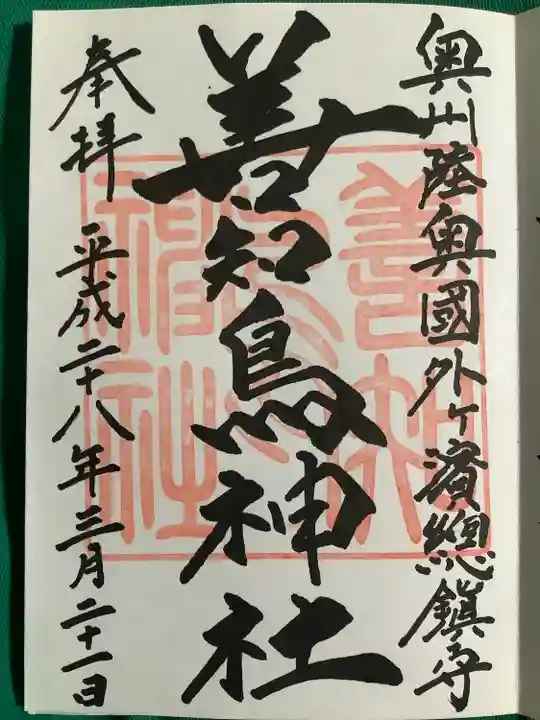 奥州陸奥國外ヶ濱總鎮守
善知鳥神社
奉拝 平成二十八年三月二十一日
善知鳥神社